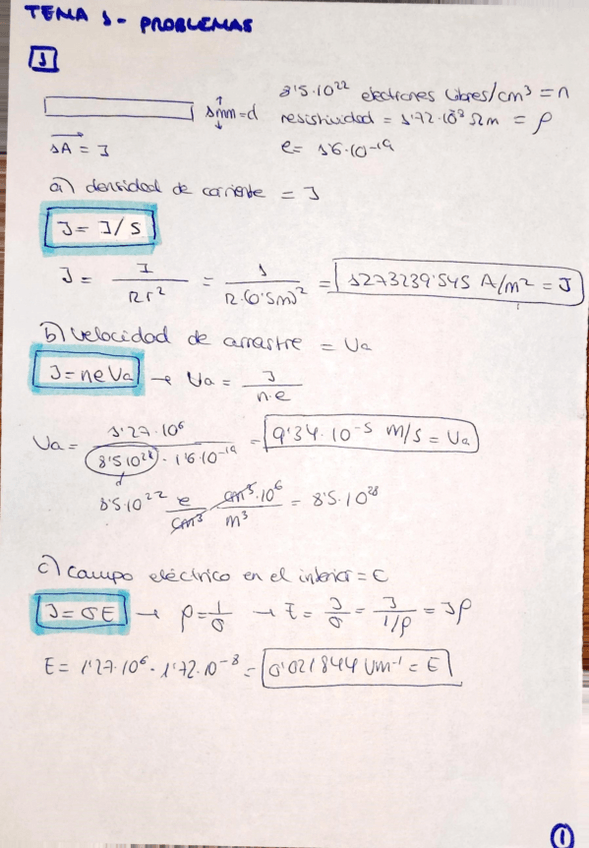 TEMA 1 - PROBLEMAS
1
8'5·10²² electrones libres/cm³ = n
1mm = d
resistividad = 1'72·10⁻⁸ Ωm = ρ
1A = I
e = 1'6·10⁻¹⁹
a) densidad de corriente = J
J = I/S
J = I / πr² = 1 / π·(0'5m)² = 1273239'545 A/m² = J
b) Velocidad de arrastre = Va
J = neVa → Va = J / n·e
Va = 1'27·10⁶ / 8'5·10²⁸ · 1'6·10⁻¹⁹ = 9'34·10⁻⁵ m/s = Va
8'5·10²² e / cm³ · cm³·10⁶ / m³ = 8'5·10²⁸
c) Campo eléctrico en el interior = E
J = σE → ρ = 1/σ → E = J/σ = J / 1/ρ = Jρ
E = 1'27·10⁶ · 1'72·10⁻⁸ = 0'021844 Vm⁻¹ = E
1